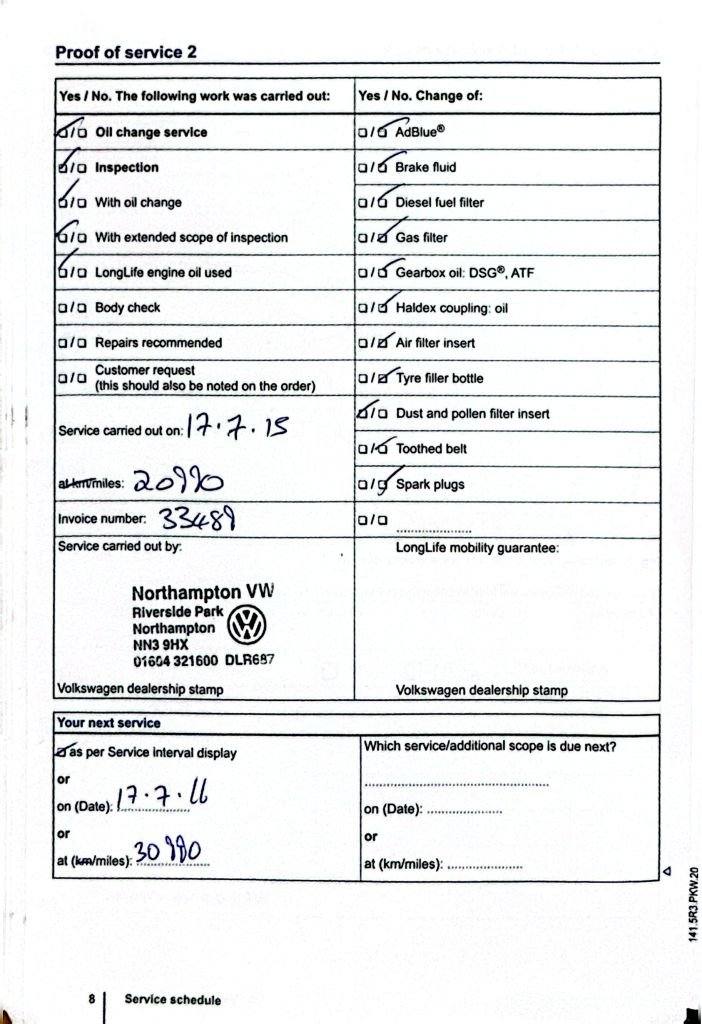 Proof of service 2
Yes / No. The following work was carried out:
☑/☐ Oil change service
☑/☐ Inspection
☑/☐ With oil change
☑/☐ With extended scope of inspection
☑/☐ LongLife engine oil used
☐/☐ Body check
☐/☐ Repairs recommended
☐/☐ Customer request
(this should also be noted on the order)
Service carried out on: 17.7.15
at km/miles: 20990
Invoice number: 33489
Service carried out by:
Northampton VW
Riverside Park
Northampton
NN3 9HX
01604 321600 DLR687
Volkswagen dealership stamp
Yes / No. Change of:
☐/☑ AdBlue®
☐/☑ Brake fluid
☐/☑ Diesel fuel filter
☐/☑ Gas filter
☐/☑ Gearbox oil: DSG®, ATF
☐/☑ Haldex coupling: oil
☐/☑ Air filter insert
☐/☑ Tyre filler bottle
☑/☐ Dust and pollen filter insert
☐/☑ Toothed belt
☐/☑ Spark plugs
☐/☐ ....................
LongLife mobility guarantee:
Volkswagen dealership stamp
Your next service
☑ as per Service interval display
or
on (Date): 17.7.16
or
at (km/miles): 30990
Which service/additional scope is due next?
on (Date): ....................
or
at (km/miles): ....................
141.5R3.PKW.20
8 Service schedule